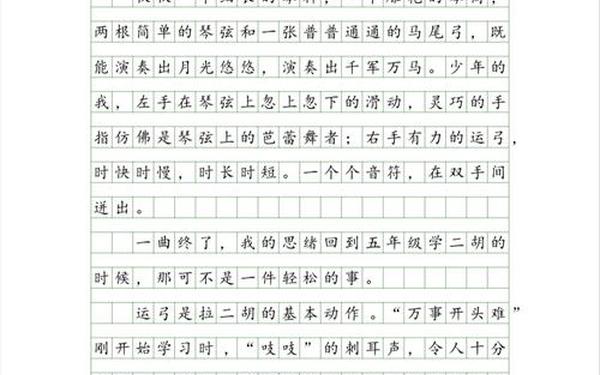 两根简单的琴弦和一张普普通通的马尾弓，既
能演奏出月光悠悠，演奏出千军万马。少年的
我，左手在琴弦上忽上忽下的滑动，灵巧的手
指仿佛是琴弦上的芭蕾舞者；右手有力的运弓，
时快时慢，时长时短。一个个音符，在双手间
迸出。
一曲终了，我的思绪回到五年级学二胡的
时候，那可不是一件轻松的事。
运弓是拉二胡的基本动作。“万事开头难”
刚开始学习时，“吱吱”的刺耳声，令人十分